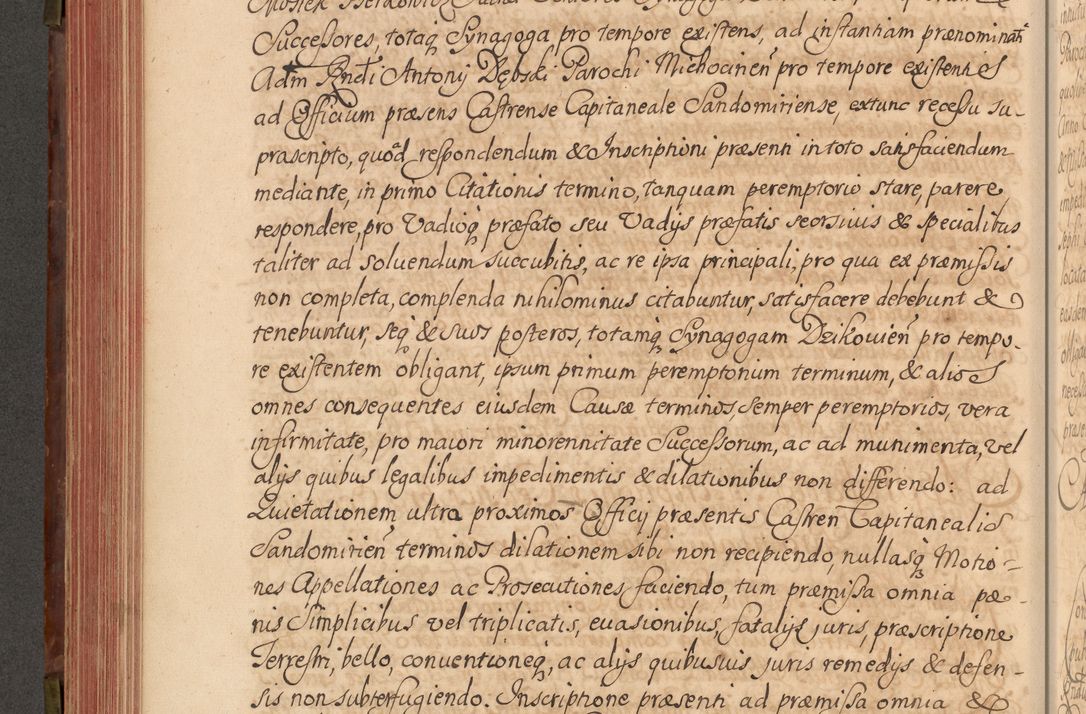 Successores, totaq Synagoga pro tempore existens, ad instantiam prænominati
Adm Rndi Antonij Dębski Parochi Michocinen pro tempore existentis
ad Officium præsens Castrense Capitaneale Sandomiriense, extunc recessu su-
prascripto, quoad respondendum & Inscriptioni præsenti in toto satisfaciendum
mediante, in primo Citationis termino, tanquam peremptorio stare, parere
respondere, pro Vadioq præfato seu Vadijs præfatis seorsivis & specialibus
taliter ad solvendum succubitis, ac re ipsa principali, pro qua ex præmissis
non completa, complenda nihilominus citabuntur, satisfacere debebunt &
tenebuntur, seq & suos posteros, totamq Synagogam Dzikovien pro tempo-
re existentem obligant, ipsum primum peremptorium terminum, & alios
omnes consequentes eiusdem Causæ terminos semper peremptorios, vera
infirmitate, pro maiori minorennitate Successorum, ac ad munimenta, vel
alijs quibus legalibus impedimentis & dilationibus non differendo: ad
Quietationem ultra proximos Officij præsentis Castren Capitanealis
Sandomirien terminos dilationem sibi non recipiendo, nullasq Motio-
nes Appellationes ac Prosecutiones faciendo, tum præmissa omnia pæ-
nis simplicibus vel triplicatis, evasionibus, fatalijs juris, præscriptione
Terrestri, bello, conventioneq, ac alijs quibusuis juris remedijs & defen-
sis non subterfugiendo. Inscriptione præsenti ad præmissa omnia &